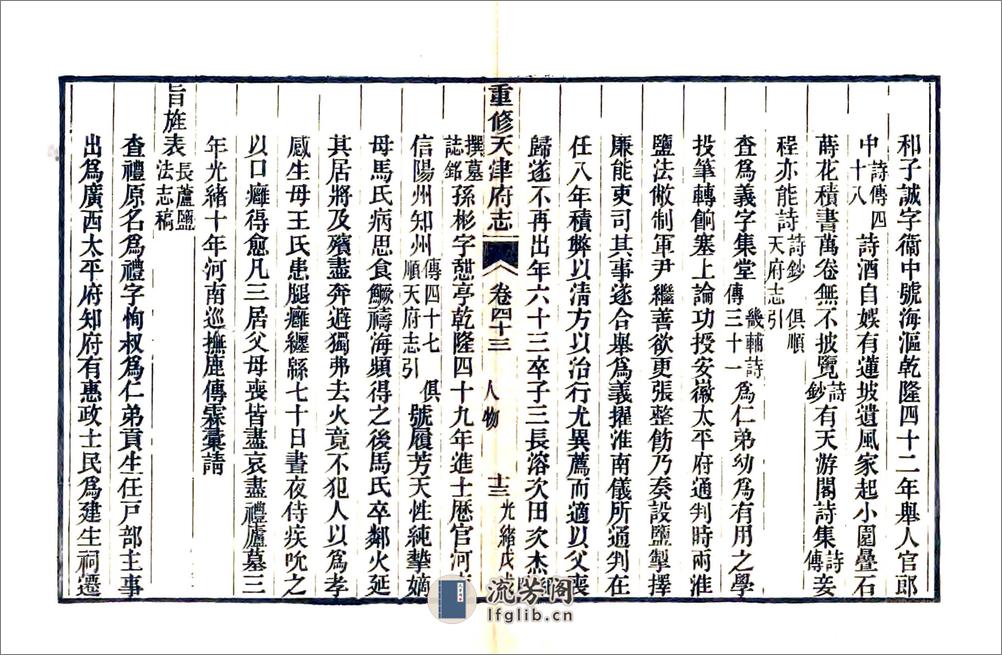 和子誠字蘅中號海漚乾隆四十二年舉人官郎
中詩傳四十八詩酒自娛有蓮坡遺風家起小園疊石
蒔花積書萬卷無不披覽詩鈔有天游閣詩集詩傳妾
程亦能詩詩鈔俱順天府志引
查爲義字集堂畿輔詩傳三十一爲仁弟幼爲有用之學
投筆轉餉塞上論功授安徽太平府通判時兩淮
鹽法敝制軍尹繼善欲更張整飭乃奏設鹽掣擇
廉能吏司其事遂合舉爲義擢淮南儀所通判在
任八年積弊以淸方以治行尤異薦而適以父喪
歸遂不再出年六十三卒子三長溶次田次杰
撰墓誌銘孫彬字憩亭乾隆四十九年進士歷官河
重修天津府志 卷四十三 人物 十三 光緒戊
信陽州知州傳四十七俱順天府志引號履芳天性純摯嫡
母馬氏病思食鱖禱海頻得之後馬氏卒鄰火延
其居將及殯盡奔避獨弗去火竟不犯人以爲孝
感生母王氏患腿癰纏緜七十日晝夜侍疾吮之
以口癰得愈凡三居父母喪皆盡哀盡禮廬墓三
年光緒十年河南巡撫鹿傳霖彙請
旨旌表長蘆鹽法志稿
查禮原名爲禮字恂叔爲仁弟貢生任戸部主事
出爲廣西太平府知府有惠政士民爲建生祠遷
流芳阁
lfglib.cn